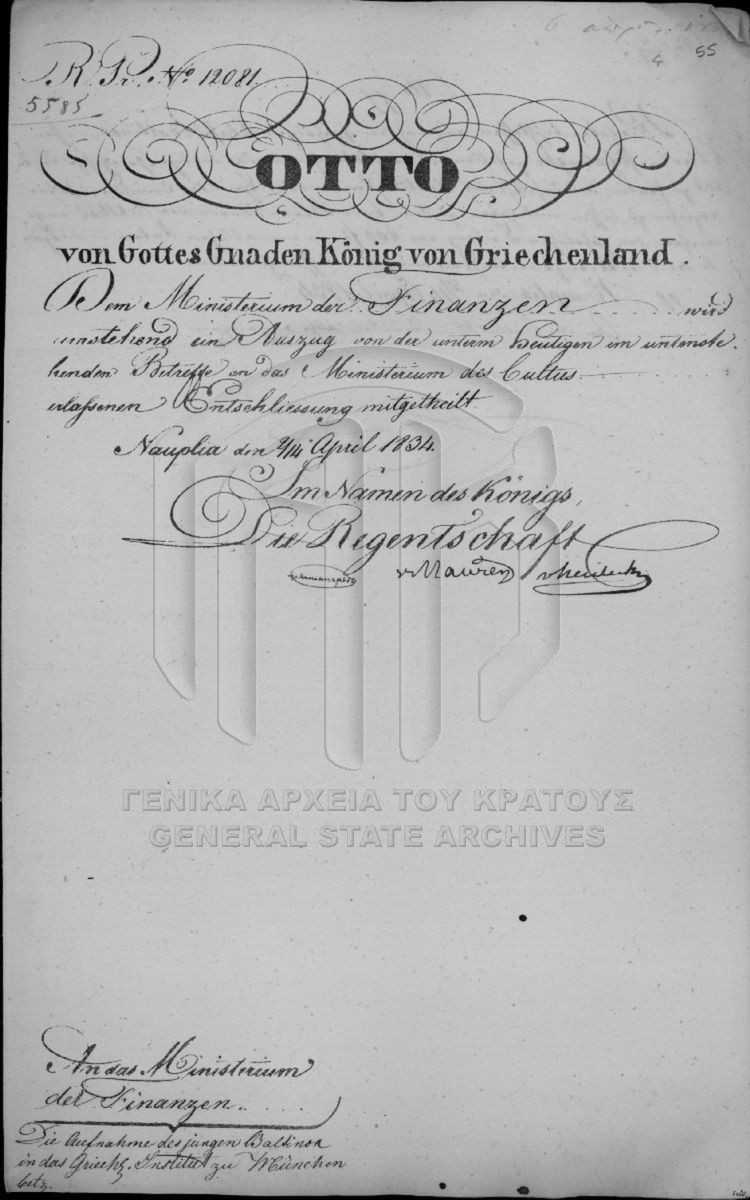 4 55
R. Pr. No 12081.
5585
OTTO
von Gottes Gnaden König von Griechenland.
Dem Ministerium der Finanzen wird
umstehend ein Auszug von der unterm heutigen im untenste-
henden Betreffe an das Ministerium des Cultus
erlaßenen Entschliessung mitgetheilt.
Nauplia den 2/14 April 1834.
Im Namen des Königs,
Die Regentschaft
v Maurer v Heideck
ΓΕΝΙΚΑ ΑΡΧΕΙΑ ΤΟΥ ΚΡΑΤΟΥΣ
GENERAL STATE ARCHIVES
An das Ministerium
der Finanzen.
Die Aufnahme des jungen
in das Griech. Institut zu München
betr.